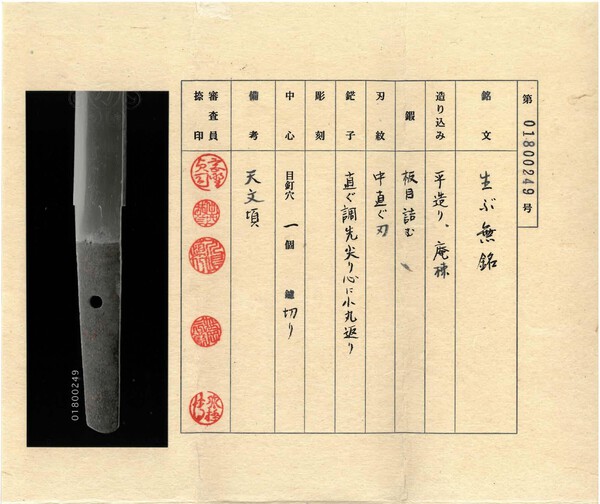 第 01800249 号
銘文 生ぶ無銘
造り込み 平造り、庵棟
鍛 板目詰む
刃紋 中直ぐ刃
鋩子 直ぐ調先尖り心に小丸返り
彫刻
中心 目釘穴 一個 鑢 切り
備考 天文頃
審査員捺印
01800249